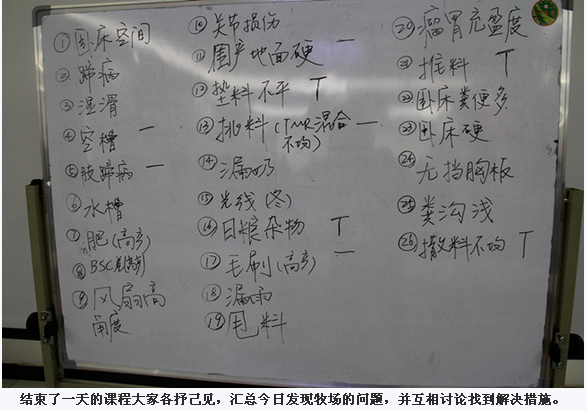 ①卧床空间
②蹄病
③湿滑
④空槽 一
⑤肢蹄病 一
⑥水槽
⑦肥(高产)
⑧BSC
⑨风扇高
角度
⑩关节损伤
⑪围产地面硬 一
⑫垫料不平 T
⑬挑料(TMR混合 一
不均)
⑭漏奶
⑮光线(冬)
⑯日粮杂物 T
⑰毛刷(高产) 一
⑱漏雨
⑲甩料
⑳瘤胃充盈度
㉑推料 T
㉒卧床粪便多
㉓卧床硬
㉔无挡胸板
㉕粪沟浅
㉖撒料不均 T
结束了一天的课程大家各抒己见，汇总今日发现牧场的问题，并互相讨论找到解决措施。